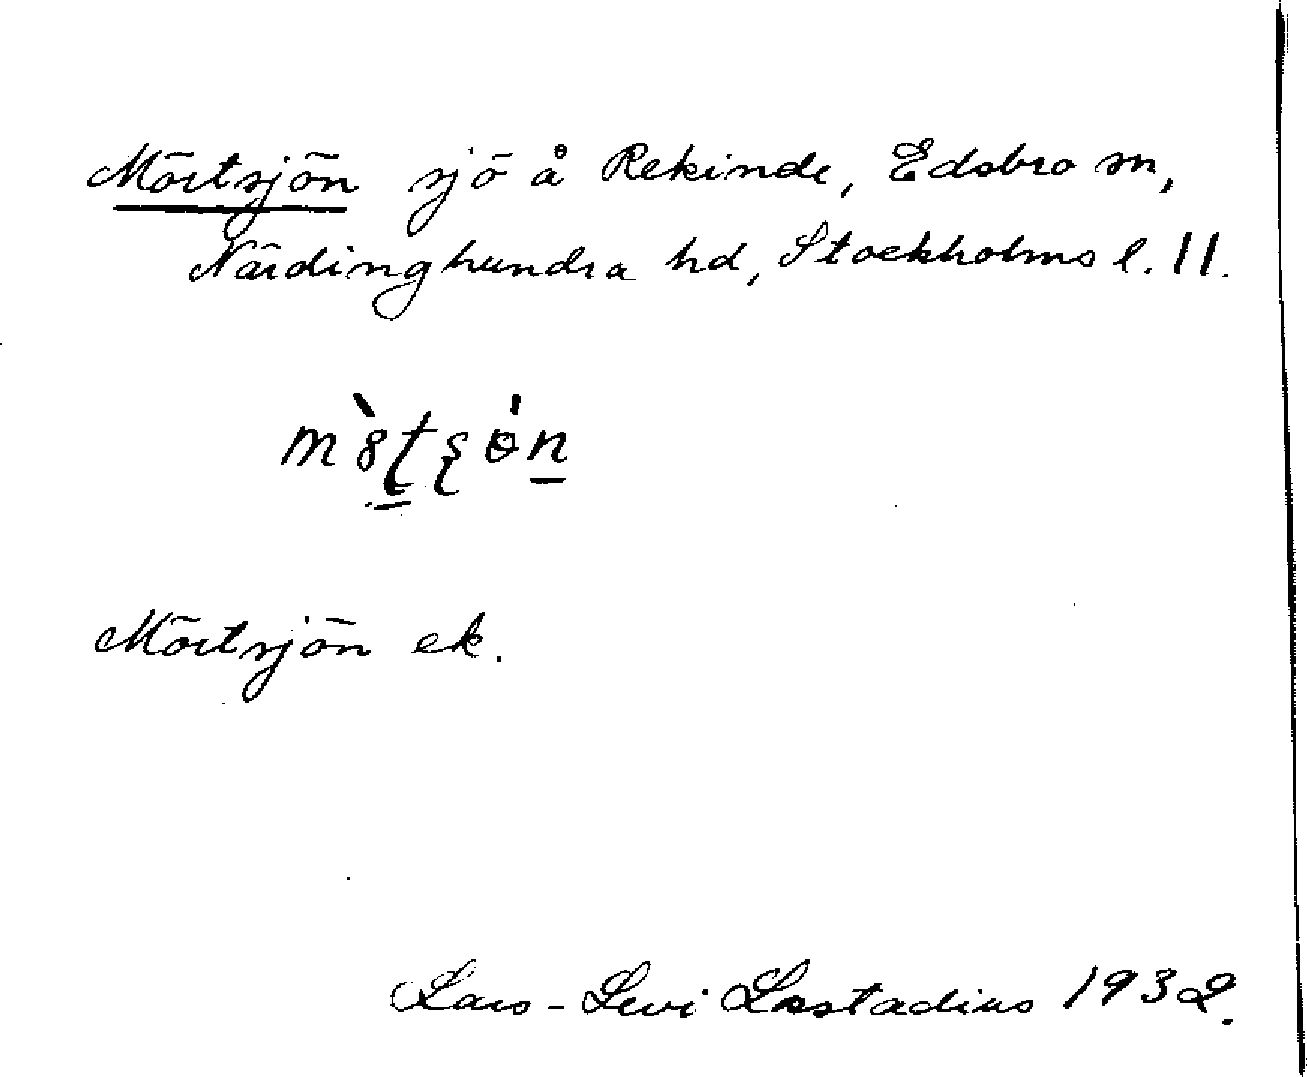 Mörtsjön sjö å Rekinde, Edsbro sn,
Närdinghundra hd, Stockholms l. 11.
Mörtsjön ek.
Lars-Levi Læstadius 1932.